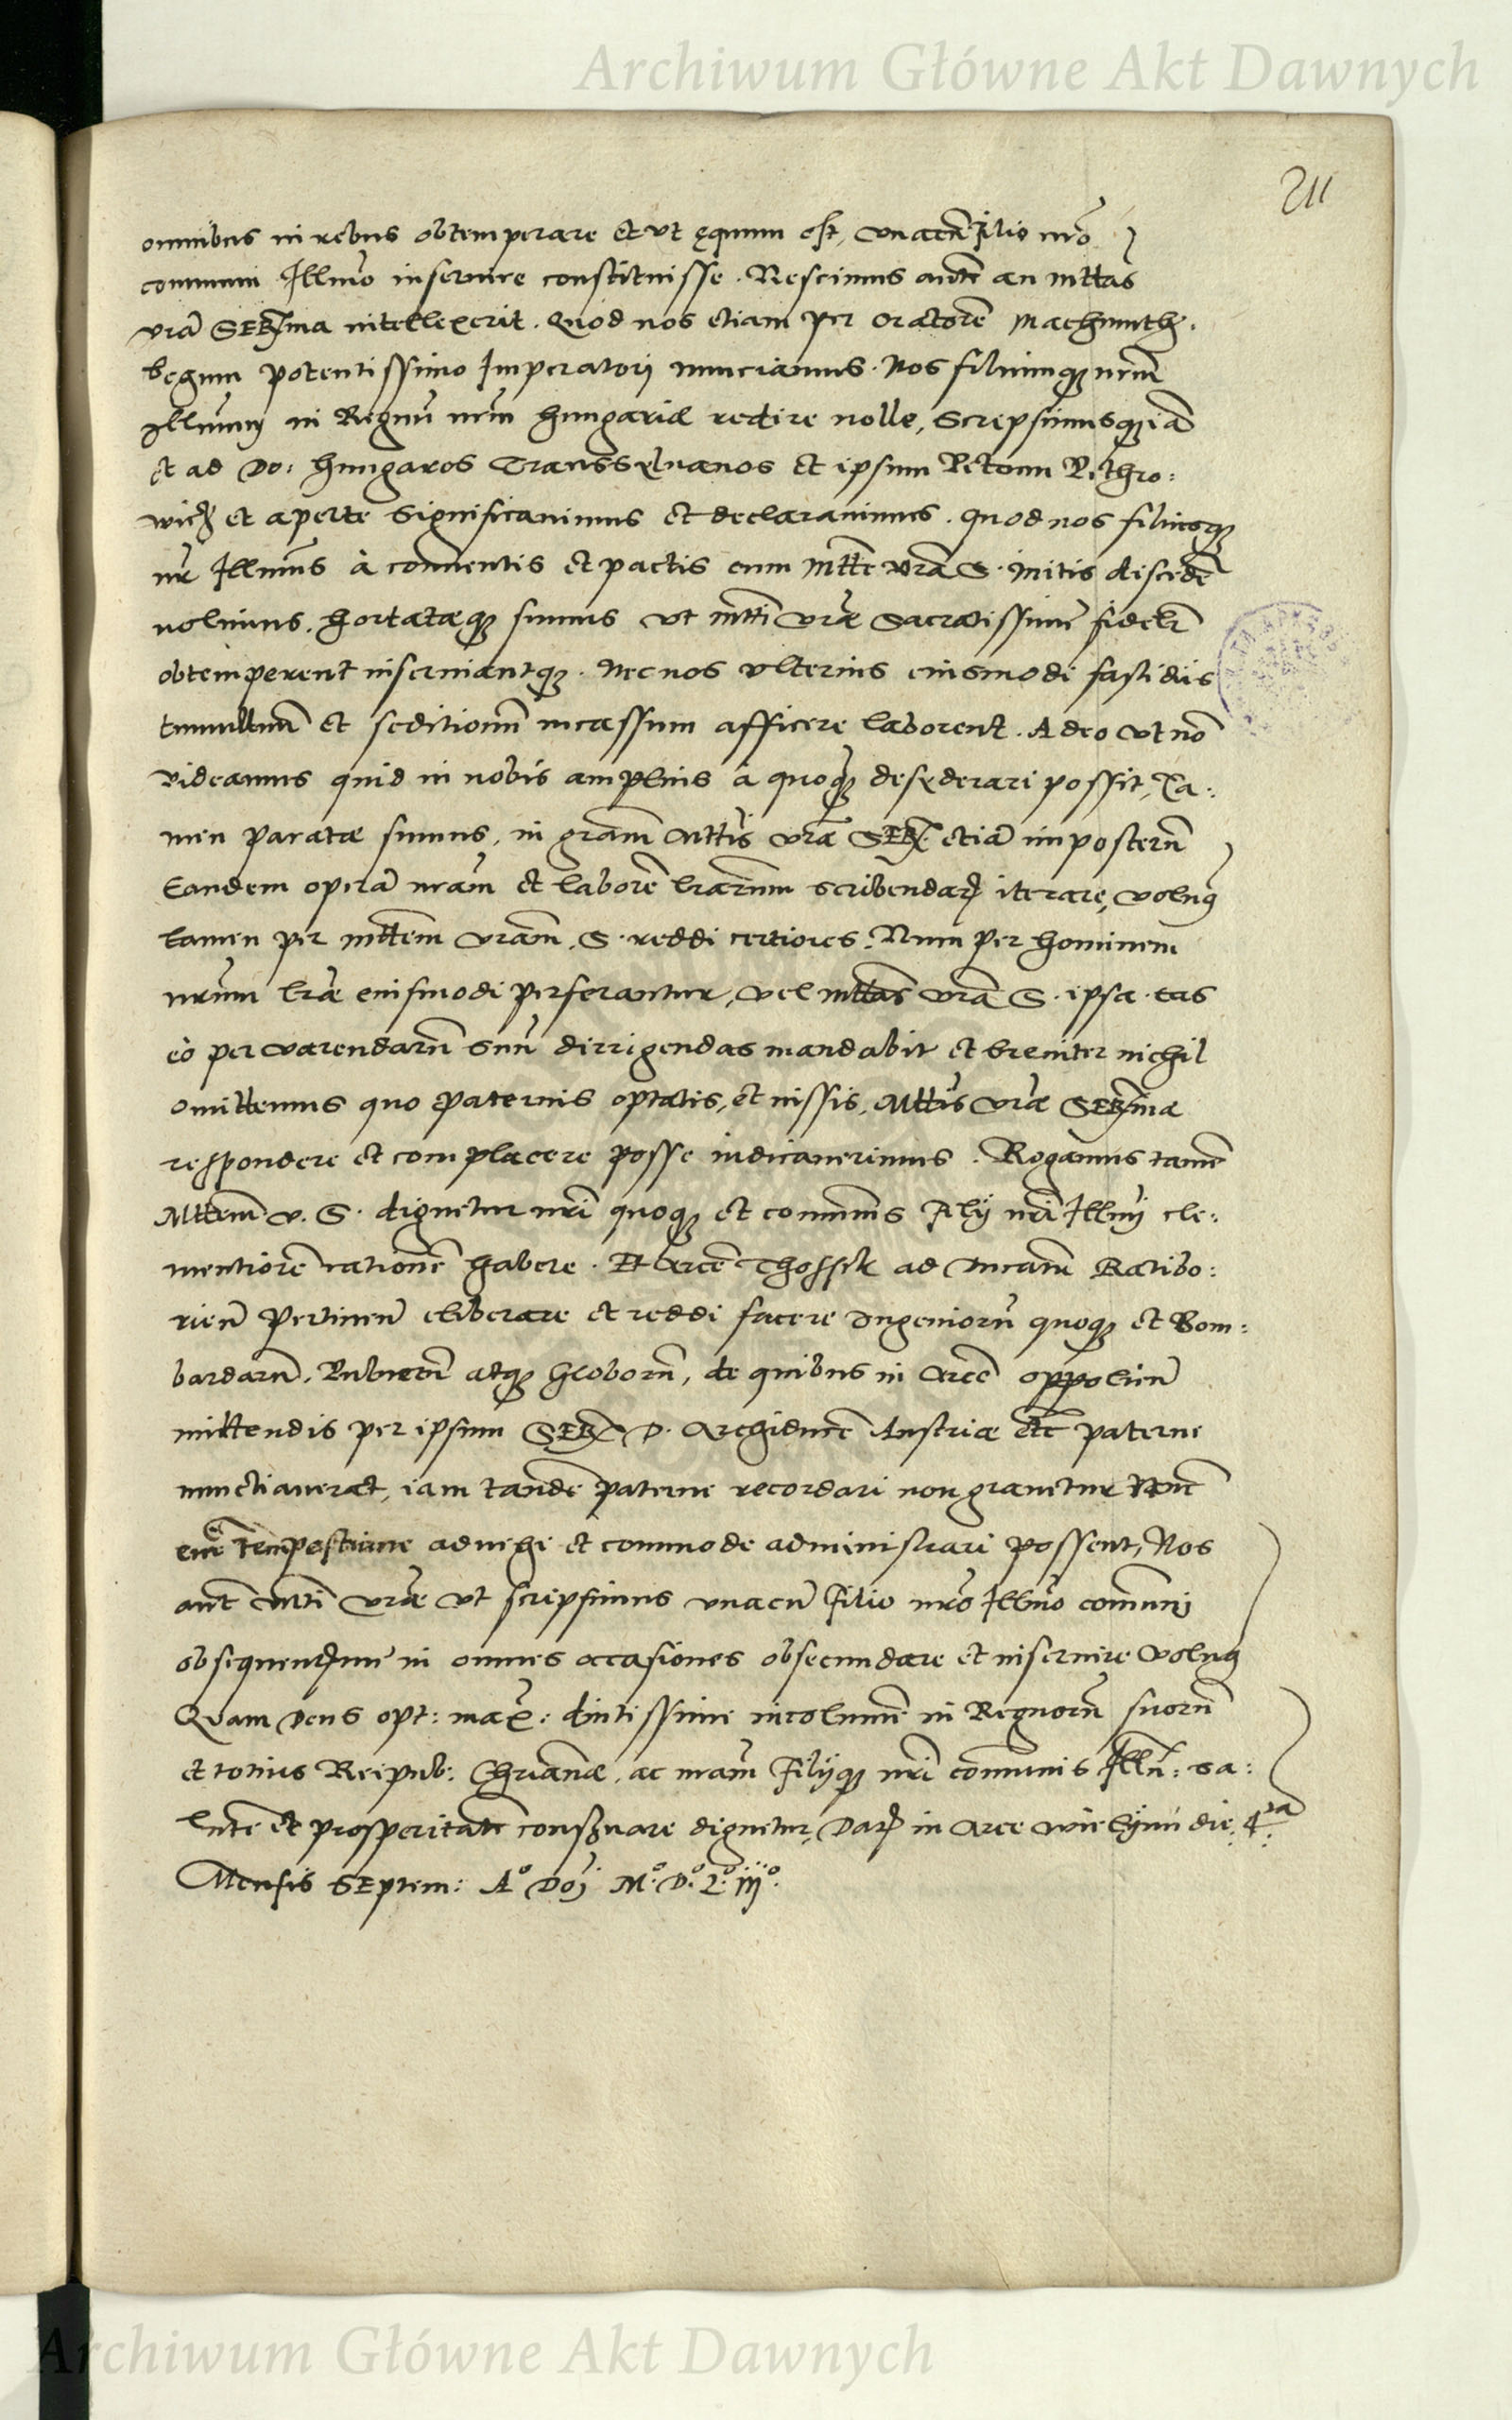 Archiwum Główne Akt Dawnych
211
omnibus in rebus obtemperare et ut ęquum est, unacũ Filio nrõ
communi Illmo inservire constituisse. Nescimus autẽ an mttas
vrã SERma intellexerit. Quod nos etiam per Oratorẽ Machmuth.
begum potentissimo Imperatorj nunciamus. Nos filiumque nrm̃
Illmum in Regnũ nrm̃ Hungariæ redire nolle, Scripsimusque iã
et ad Do: Hungaros Transsylvanos et ipsum Petrum Pethro:
wich et aperte significavimus et declaravimus. quod nos filiusque
nr̃ Illmus à conventis et pactis cum Mtte vrã S. initis discedẽ
nolimus. hortatæque sumus ut mtti vræ Sacratissimę fidelr̃
obtemperent inserviantque. Nec nos ulterius eiusmodi fastidiis
tumultuũ et seditionũ incassum afficere laborent. Adeo ut nõ
videamus quid in nobis amplius à quoque desyderari possit, Ta:
men paratæ sumus, in gram̃ Mttis vræ SER. etiã imposterũ
eandem operã nram̃ et laborẽ lrarum scribendar iterare, volumus
tamen per mttem vram̃. S. reddi certiores. Num per hominem
nrũm lræ eiusmodi perferantur, vel mttas vrã S. ipsa eas
eò per Varendarũ suũ dirrigendas mandabit et breviter nichil
omittemus quo paternis optatis, et iussis, Mttis vræ SERmæ
respondere et complacere posse iudicaverimus. Rogamus tamẽ
Mttem v. S. dignetur nri quoque et communis Filij nri Illmi cle:
mentiorẽ rationẽ habere. Et Arcẽ Thossek ad Ducatũ Ratibo:
rieñ pertineñ eliberare et reddi facere Ingeniorũ quoque et Bom:
bardarũ. Pulverũ atque Globorũ, de quibus in Arcẽ Oppolieñ
mittendis per ipsum SER. D. Archiducẽ Austriæ etc paterne
nunctiaverat, iam tandẽ paterne recordari non gravetur Nunc
enĩ tempestive advehi et commode administrari possent, Nos
aut mtti vræ ut scripsimus unacũ Filio nrõ Illmo communi
obsequentium in omnes occasiones obsecundare et inservire volumus
Quam Deus opt: max: diutissime incolumẽ in Regnorũ suorũ
et totius Reipub: Chrianæ. ac nram̃ Filijque nri communis Illm: sa:
lutẽ et prosperitatẽ conservare dignetur, Dat in Arce Wielijnu die. 4ta
Mensis SEptem: Ao Doj Mo. Do. Lo. iijo.
Archiwum Główne Akt Dawnych